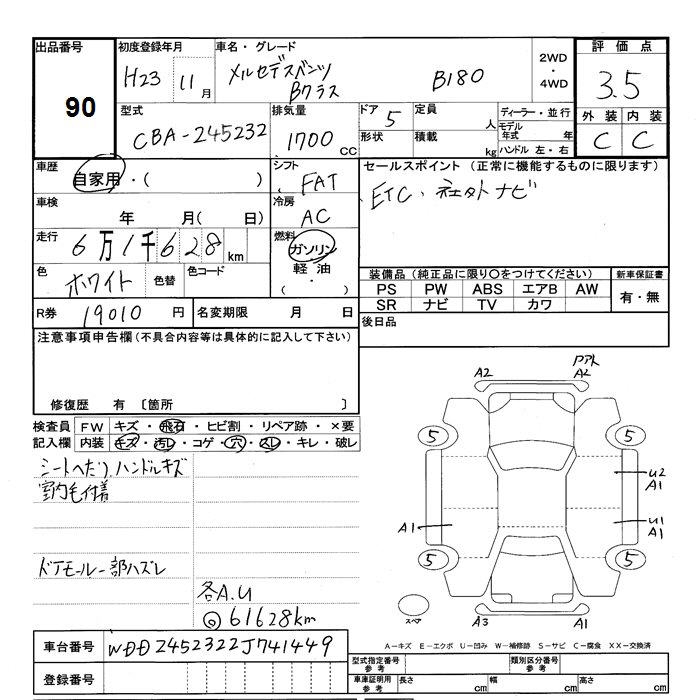 出品番号 初度登録年月 車名・グレード 2WD・4WD 評価点
90 H23 11月 メルセデスベンツ Bクラス B180 3.5
型式 排気量 ドア 5 定員 人 ディーラー・並行 外装 内装
CBA-245232 1700cc 形状 積載 kg モデル年式 年 C C
ハンドル 左・右
車歴 シフト セールスポイント (正常に機能するものに限ります)
自家用・( ) FAT ETC・社外ナビ
車検 冷房
年 月( 日) AC
走行 6万1千628km 燃料
ガソリン
軽油
・( )
色 ホワイト 色替 色コード
装備品 (純正品に限り○をつけてください) 新車保証書
PS PW ABS エアB AW 有・無
SR ナビ TV カワ
R券 19010円 名変期限 月 日 後日品
注意事項申告欄(不具合内容等は具体的に記入して下さい)
修復歴 有 〔箇所 〕
検査員 FW キズ・飛石・ヒビ割・リペア跡・×要
記入欄 内装 キズ・汚レ・コゲ・穴・スレ・キレ・破レ
シートへたり、ハンドルキズ
室内毛付着
ドアモール一部ハズレ
各A.U
◎61628km
A2 A2
5 5
U2
A1
A1 U1
A1
5 5
スペア A3 A1
A－キズ E－エクボ U－凹み W－補修跡 S－サビ C－腐食 XX－交換済
車台番号 WDD2452322J741449
登録番号
型式指定番号 参考 類別区分番号 参考
車庫証明用 参考 長さ cm 幅 cm 高さ cm